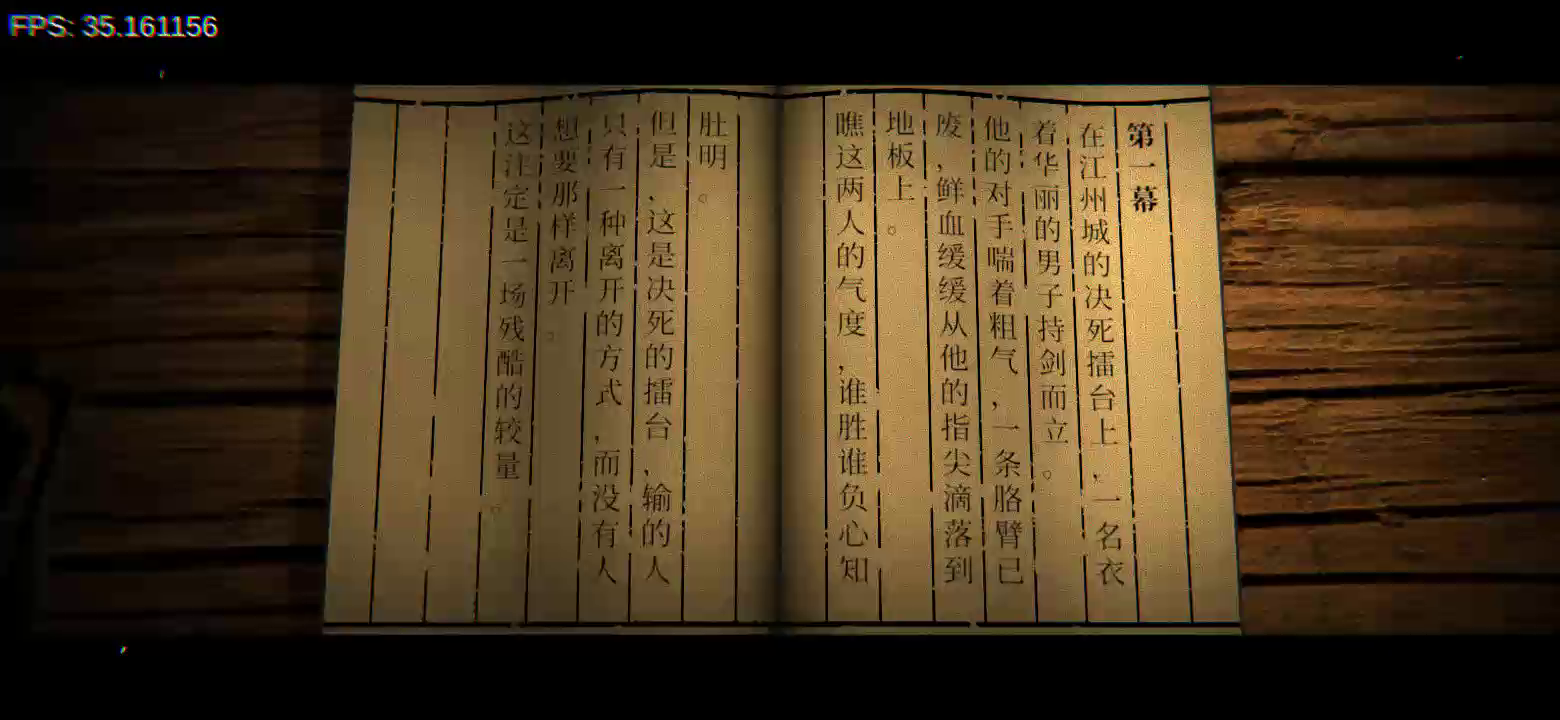 FPS: 35.161156
第一幕
在江州城的决死擂台上,一名衣
着华丽的男子持剑而立。
他的对手喘着粗气,一条胳臂已
废,鲜血缓缓从他的指尖滴落到
地板上。
瞧这两人的气度,谁胜谁负心知
肚明。
但是,这是决死的擂台,输的人
只有一种离开的方式,而没有人
想要那样离开。
这注定是一场残酷的较量。